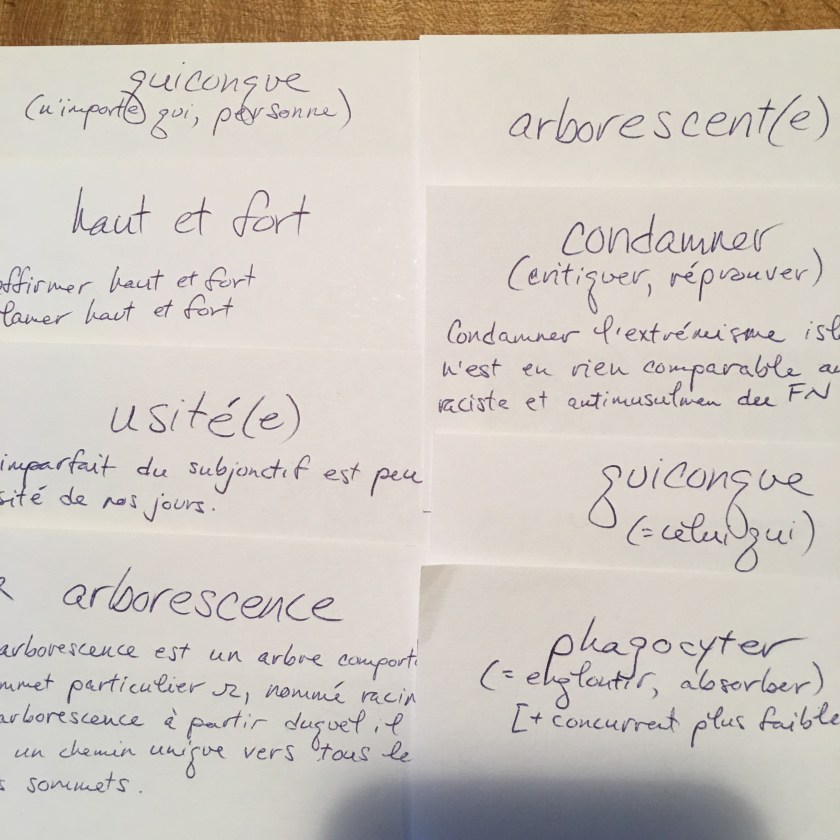 quiconque
(n'importe qui, personne)
haut et fort
affirmer haut et fort
clamer haut et fort
usité(e)
imparfait du subjonctif est peu
sité de nos jours.
arborescence
arborescence est un arbre comport
mmet particulier r, nommé racin
arborescence à partir duquel il
un chemin unique vers tous le
s sommets.
arborescent(e)
condamner
(critiquer, réprouver)
Condamner l'extrémisme isl
n'est en rien comparable au
raciste et antimusulman du FN
quiconque
(= celui qui)
phagocyter
(= engloutir, absorber)
[+ concurrent plus faible